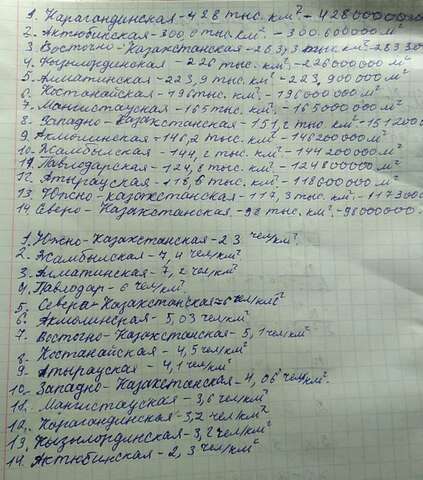 1. Карагандинская - 428 тыс. км² - 428000000
2. Актюбинская - 300,6 тыс. км² - 300.600000 м²
3. Восточно-Казахстанская - 283,3 тыс км² - 283 30
4. Кызылординская - 226 тыс. км² - 226000000 м²
5. Алматинская - 223,9 тыс. км² - 223,900000 м²
6. Костанайская - 196 тыс. км² - 196000000 м²
7. Мангистауская - 165 тыс. км² - 165000000 м²
8. Западно-Казахстанская - 151,2 тыс. км² - 151200
9. Акмолинская - 146,2 тыс. км² - 146200000 м²
10. Жамбылская - 144,2 тыс. км² - 144200000 м²
11. Павлодарская - 124,8 тыс. км² - 124800000 м²
12. Атырауская - 118,6 тыс. км² - 118600000 м²
13. Южно-казахстанская - 117,3 тыс. км² - 117300
14. Северо-Казахстанская - 98 тыс. км² - 98000000.
1. Южно-Казахстанская - 23 чел/км²
2. Жамбылская - 7,4 чел/км²
3. Алматинская - 7,2 чел/км²
4. Павлодар - 6 чел/км²
5. Северо-Казахстанская = 6 чел/км²
6. Акмолинская - 5,03 чел/км²
7. Восточно-Казахстанская - 5,1 чел/км²
8. Костанайская - 4,5 чел/км²
9. Атырауская - 4,1 чел/км²
10. Западно-Казахстанская - 4,06 чел/км².
11. Мангистауская - 3,6 чел/км²
12. Карагандинская - 3,2 чел/км²
13. Кызылординская - 3,2 чел/км²
14. Актюбинская - 2,3 чел/км²